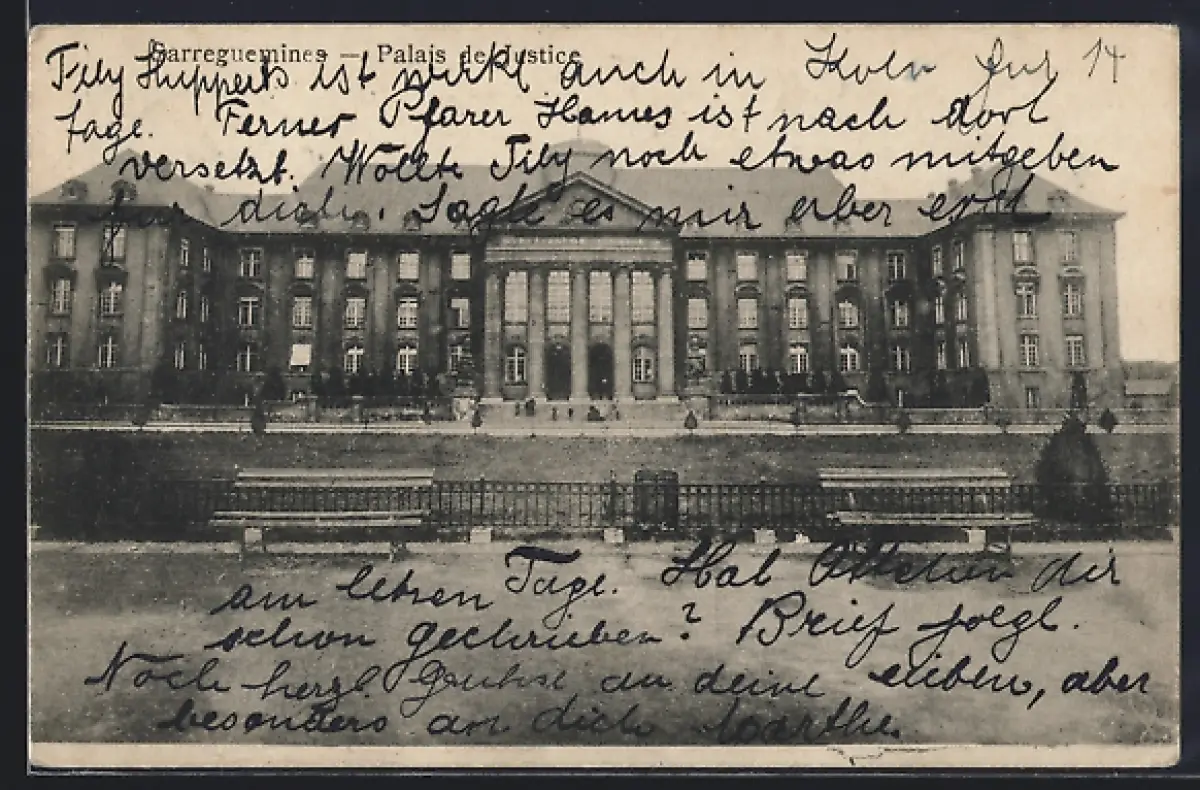 Sarreguemines — Palais de Justice
Tily Huppertz ist wirkl auch in Koln fur 14
tage. Ferner Pfarer Hames ist nach dort
versetzt. Wollte Tily noch etwas mitgeben
fur dich. Sagte es mir aber erst
am letzen Tage. Hat Ottchen dir
schon geschrieben? Brief folgt.
Noch herzl. Gruhse an deine lieben, aber
besonders an dich Marthe.